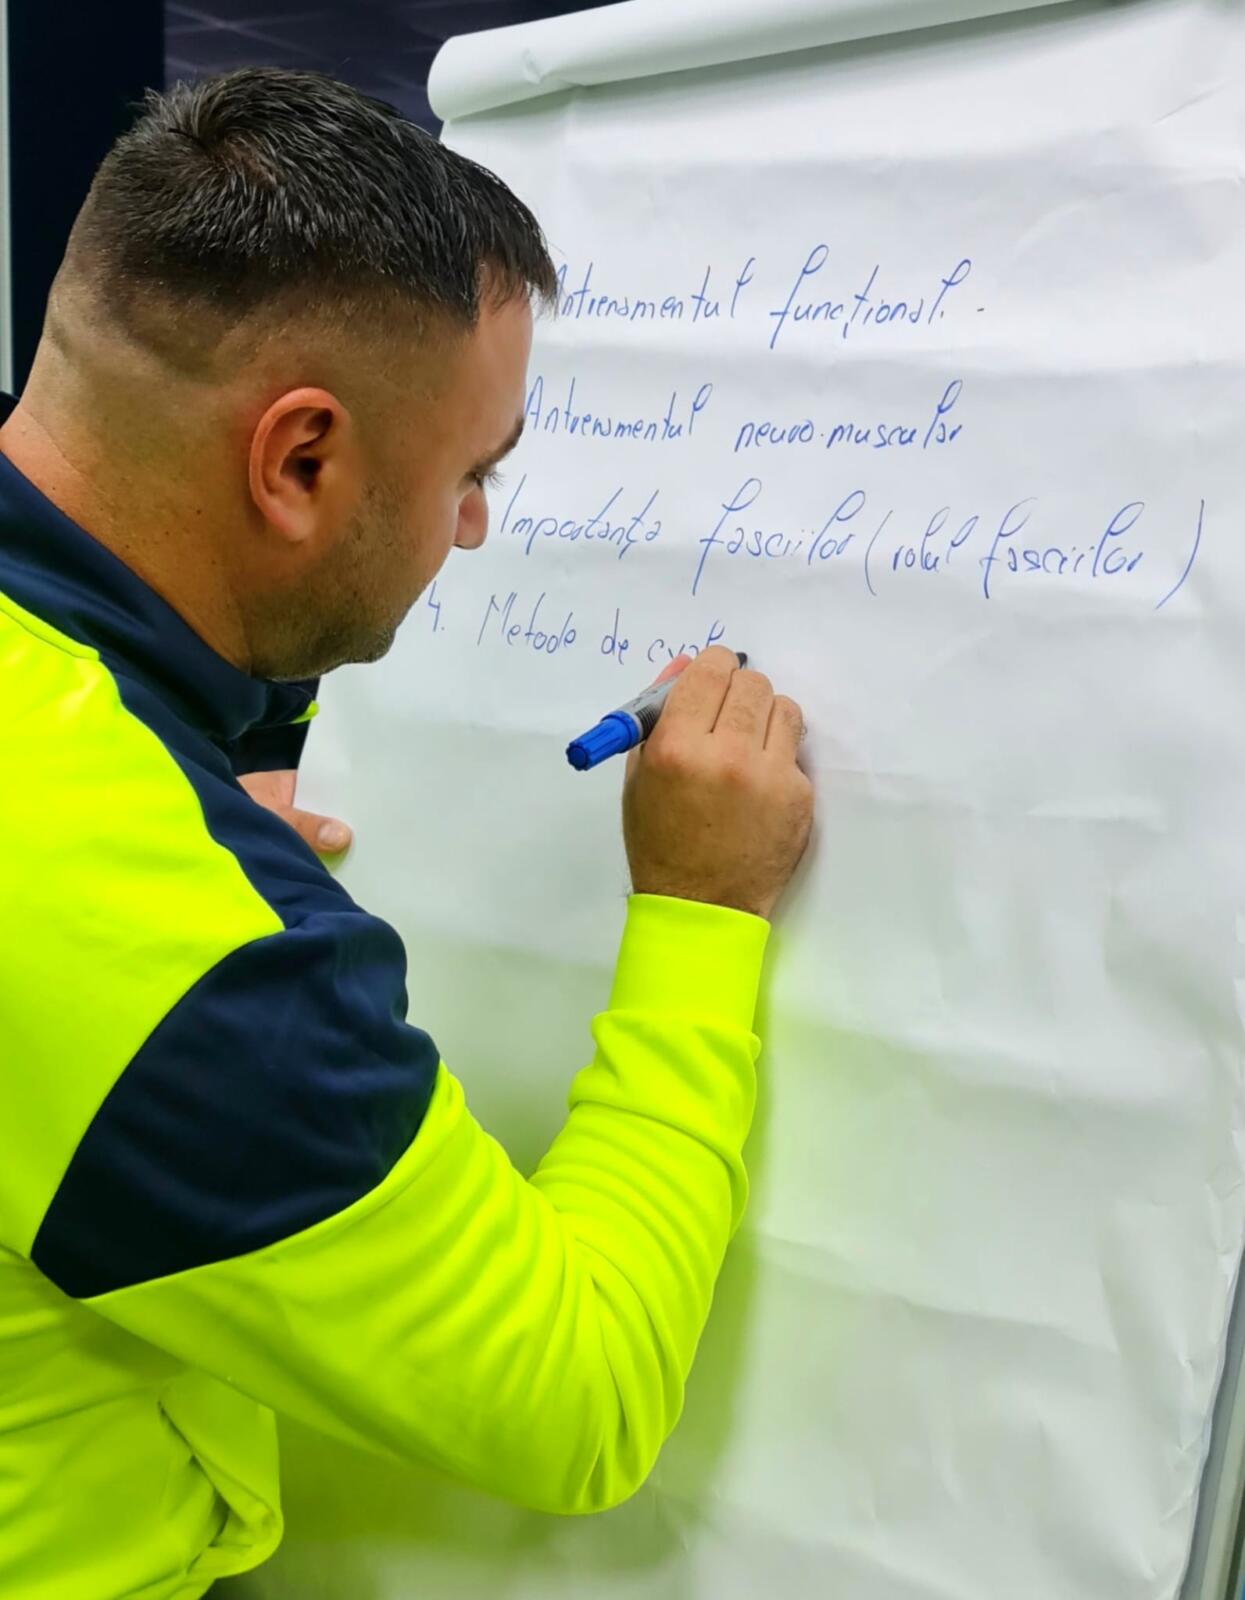 Antrenamentul funcțional. -
Antrenamentul neuro-muscular
Importanța fasciilor (rolul fasciilor)
4. Metode de eval